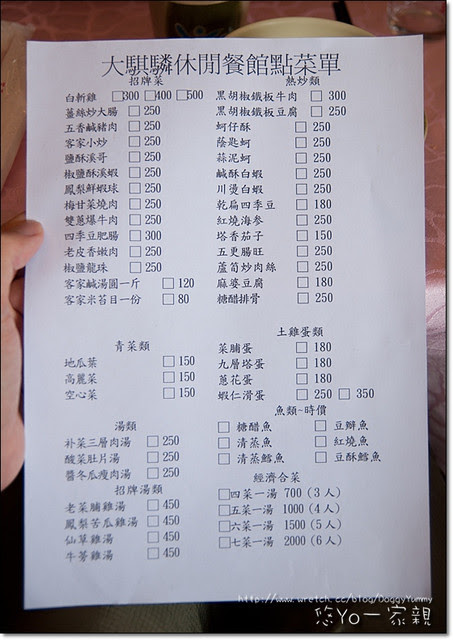 大騏驎休閒餐館點菜單
招牌菜
白斬雞 □300 □400 □500
薑絲炒大腸 □250
五香鹹豬肉 □250
客家小炒 □250
鹽酥溪哥 □250
椒鹽酥溪蝦 □250
鳳梨鮮蝦球 □250
梅甘菜燒肉 □250
雙蔥爆牛肉 □250
四季豆肥腸 □300
老皮香嫩肉 □250
椒鹽龍珠 □250
客家鹹湯圓一斤 □120
客家米苔目一份 □80
青菜類
地瓜葉 □150
高麗菜 □150
空心菜 □150
湯類
朴菜三層肉湯 □250
酸菜肚片湯 □250
醬冬瓜瘦肉湯 □250
招牌湯類
老菜脯雞湯 □450
鳳梨苦瓜雞湯 □450
仙草雞湯 □450
牛蒡雞湯 □450
熱炒類
黑胡椒鐵板牛肉 □300
黑胡椒鐵板豆腐 □200
蚵仔酥 □250
蔭匙蚵 □250
蒜泥蚵 □250
鹹酥白蝦 □250
川燙白蝦 □250
乾扁四季豆 □180
紅燒海參 □250
塔香茄子 □150
五更腸旺 □250
蘆筍炒肉絲 □250
麻婆豆腐 □180
糖醋排骨 □250
土雞蛋類
菜脯蛋 □180
九層塔蛋 □180
蔥花蛋 □180
蝦仁滑蛋 □250 □350
魚類~時價
□糖醋魚 □豆瓣魚
□清蒸魚 □紅燒魚
□清蒸鱈魚 □豆酥鱈魚
經濟合菜
□四菜一湯 700 (3人)
□五菜一湯 1000 (4人)
□六菜一湯 1500 (5人)
□七菜一湯 2000 (6人)
http://www.wretch.cc/blog/DoggyYummy
悠Yo一家親